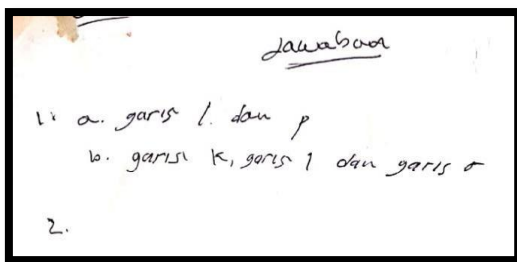 Jawaban
1. a. garis l. dan p
b. garis k, garis l dan garis o
2.